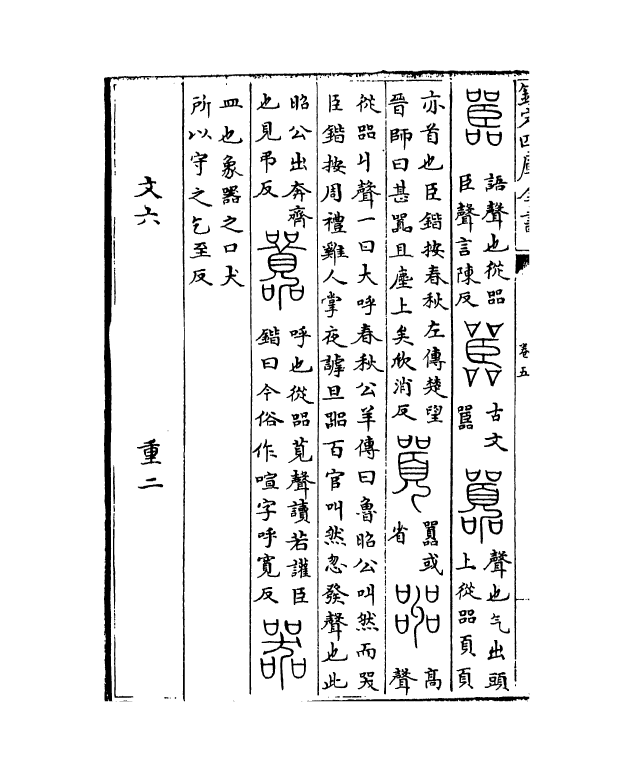 欽定四庫全書 卷五
嚚 語聲也從㗊臣聲言陳反 𡅽 古文嚚 囂 聲也气出頭上從㗊頁頁
亦首也臣鍇按春秋左傳楚望晉師曰甚囂且塵上矣欣消反 𡂦 囂或省 嘂 高聲
從㗊丩聲一曰大呼春秋公羊傳曰魯昭公叫然而哭臣鍇按周禮雞人掌夜謼旦嘂百官叫然忽發聲也此
昭公出奔齊也見弔反 𡂨 呼也從㗊莧聲讀若讙臣鍇曰今俗作喧字呼寬反 器
皿也象器之口犬所以守之乞至反
文六 重二